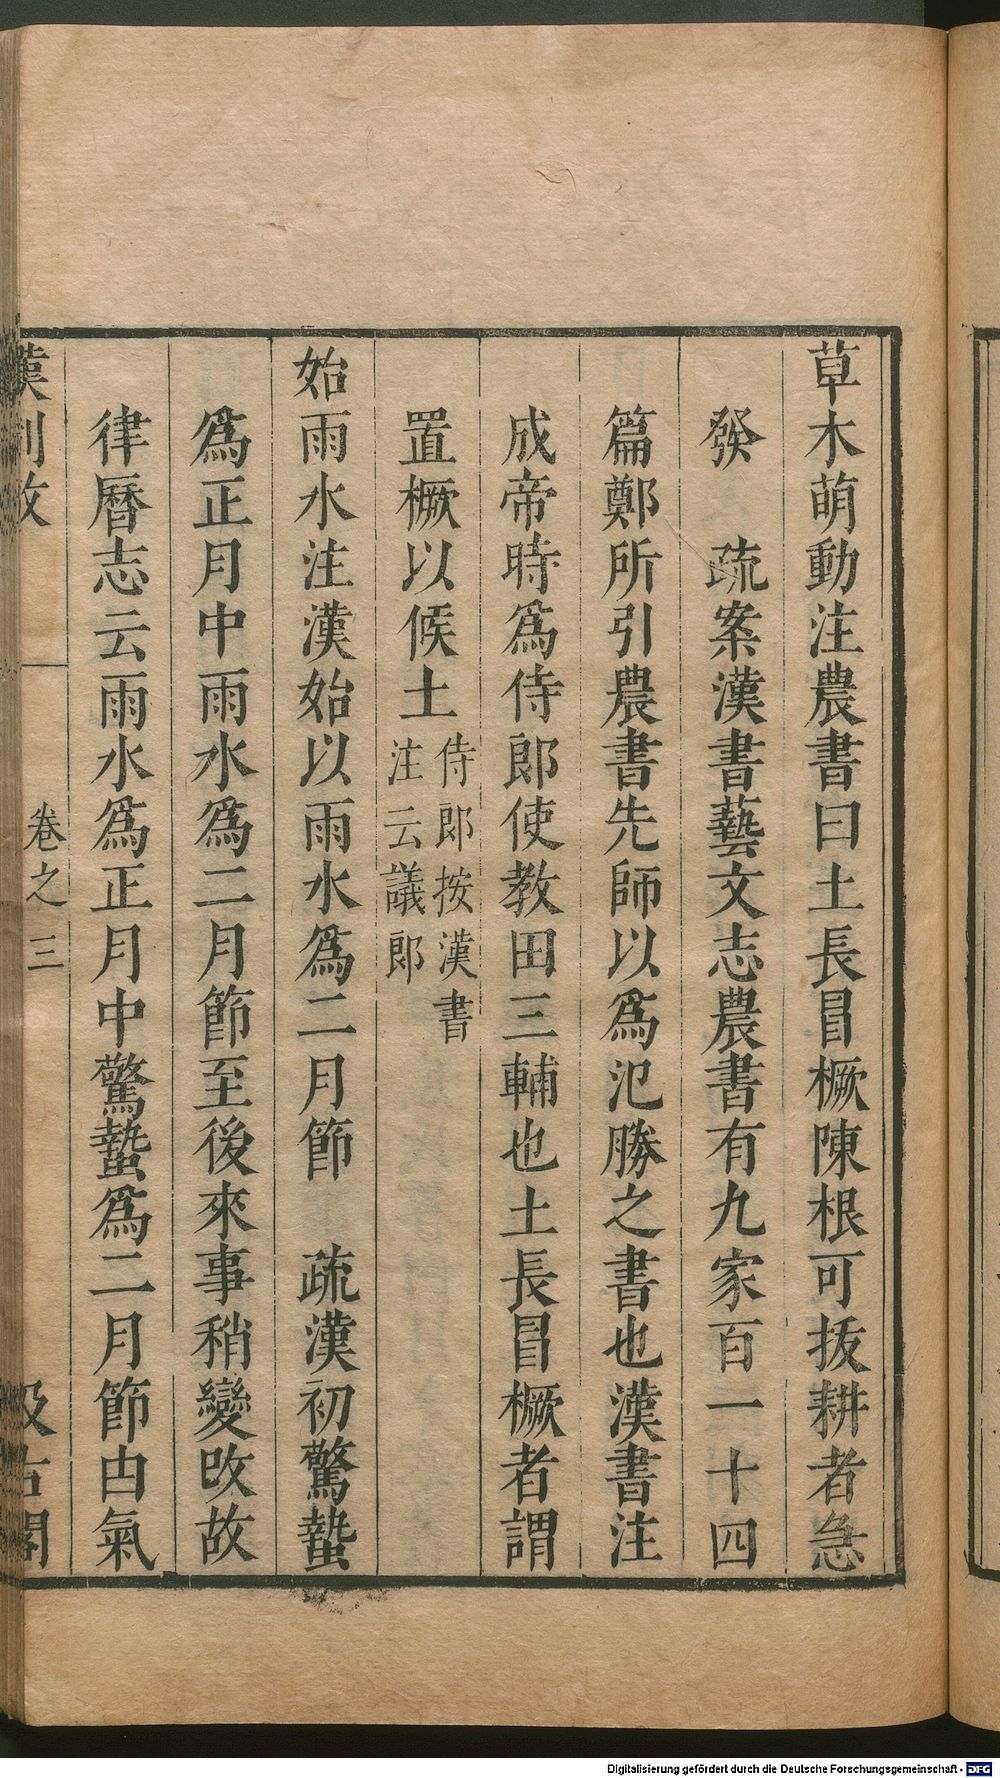 草木萌動注農書曰土長冒橛陳根可拔耕者急
發　疏案漢書藝文志農書有九家百一十四
篇鄭所引農書先師以爲氾勝之書也漢書注
成帝時爲侍郎使教田三輔也土長冒橛者謂
置橛以候土侍郎按漢書
注云議郎
始雨水注漢始以雨水爲二月節　疏漢初驚蟄
爲正月中雨水爲二月節至後來事稍變改故
律曆志云雨水爲正月中驚蟄爲二月節由氣
漢制攷　卷之三　汲古閣
Digitalisierung gefördert durch die Deutsche Forschungsgemeinschaft - DFG